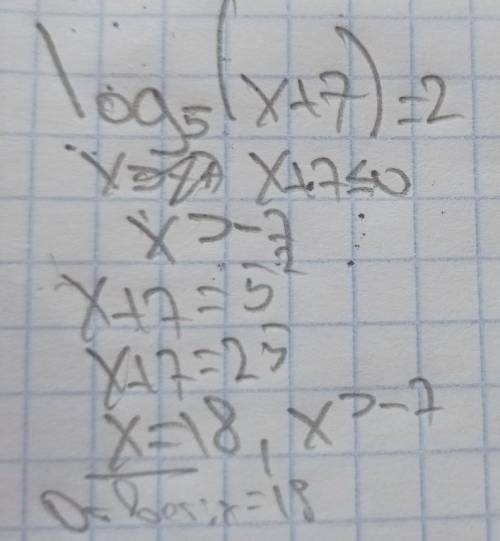 log₅(x+7)=2
x+7≤0
x>-7
x+7=5²
x+7=25
x=18, x>-7
x=18